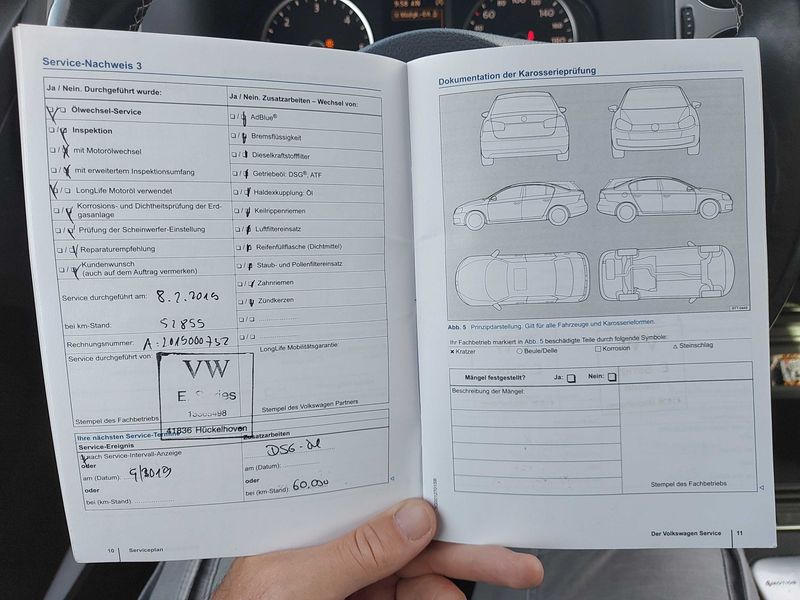 9:58 AM
Service-Nachweis 3
Ja / Nein. Durchgeführt wurde:
Ölwechsel-Service
Inspektion
mit Motorölwechsel
mit erweitertem Inspektionsumfang
LongLife Motoröl verwendet
Korrosions- und Dichtheitsprüfung der Erd-
gasanlage
Prüfung der Scheinwerfer-Einstellung
Reparaturempfehlung
Kundenwunsch
(auch auf dem Auftrag vermerken)
Service durchgeführt am: 8.2.2019
bei km-Stand: 52855
Rechnungsnummer: A:2015000752
Service durchgeführt von:
VW
41836 Hückelhoven
Stempel des Fachbetriebs
Ja / Nein. Zusatzarbeiten – Wechsel von:
AdBlue®
Bremsflüssigkeit
Dieselkraftstofffilter
Getriebeöl: DSG®, ATF
Haldexkupplung: Öl
Keilrippenriemen
Luftfiltereinsatz
Reifenfüllflasche (Dichtmittel)
Staub- und Pollenfiltereinsatz
Zahnriemen
Zündkerzen
LongLife Mobilitätsgarantie:
Stempel des Volkswagen Partners
Ihre nächsten Service-Termine
Service-Ereignis
nach Service-Intervall-Anzeige
oder
am (Datum): 9/2019
oder
bei (km-Stand):
Zusatzarbeiten
DSG-öl
am (Datum):
oder
bei (km-Stand): 60,000
10 Serviceplan
Dokumentation der Karosserieprüfung
Abb. 5 Prinzipdarstellung. Gilt für alle Fahrzeuge und Karosserieformen.
Ihr Fachbetrieb markiert in Abb. 5 beschädigte Teile durch folgende Symbole:
× Kratzer ○ Beule/Delle □ Korrosion △ Steinschlag
Mängel festgestellt? Ja: Nein:
Beschreibung der Mängel:
Stempel des Fachbetriebs
Der Volkswagen Service 11